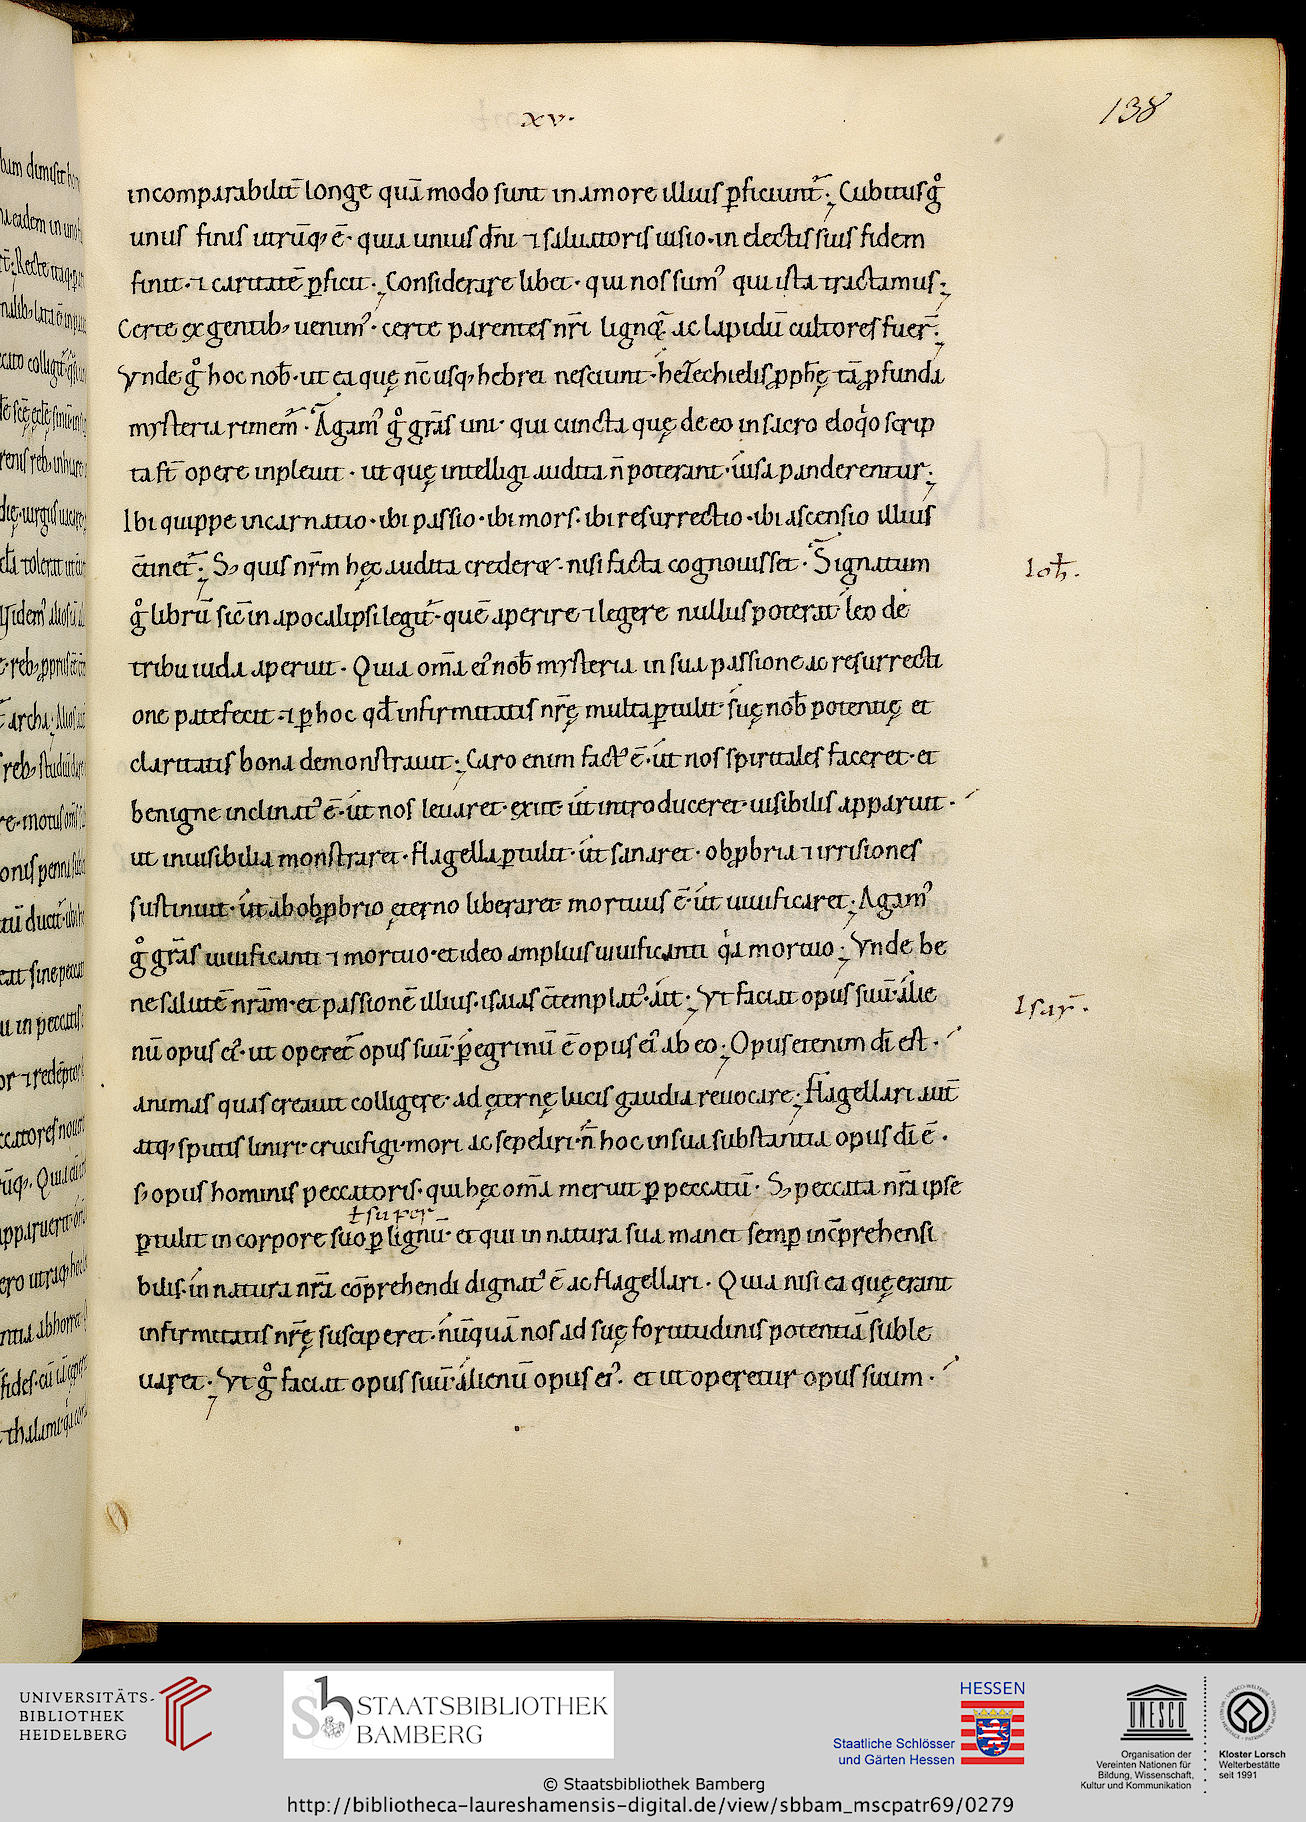 xv.
138
incomparabilit̄ longe quā modo sunt in amore illius p̱ficiunt᷑. Cubitus gͦ
unus finis utrūq; ē. quia unius dn̄i ⁊ saluatoris uisio. in electis suis fidem
finit. ⁊ caritatē p̱ficit. Considerare libet. qui nos sum᾽ qui ista tractamus.
Certe ex gentib; uenim᾽. certe parentes nr̄i lignoꝝ ac lapidū cultores fuer̄.
Vnde gͦ hoc nob̄. ut ea quę nc̄ usq; hebrei nesciunt. hiezechielis ꝓph̄ę tā ꝓfunda
mysteria rimem᷑. Agam᾽ gͦ grās uni. qui cuncta quę de eo in sacro eloq̇o scrip
ta st̄ opere inpleuit. ut quę intelligi audita n̄ poterant. uisa panderentur.
Ibi quippe incarnatio. ibi passio. ibi mors. ibi resurrectio. ibi ascensio illius
c̄tinet᷑. S; quis nr̄m hęc audita crederet. nisi facta cognouisset. Signatum
gͦ librū sic̄ in apocalipsi legit᷑. quē aperire ⁊ legere nullus poterat leo de
tribu iuda aperuit. Quia om̄a ei᾽ nob̄ mysteria in sua passione ac resurrecti
one patefecit. ⁊ ꝑ hoc qd̄ infirmitatis nr̄ę multa ꝑtulit. suę nob̄ potentię et
claritatis bona demonstrauit. Caro enim fact᾽ ē. ut nos spiritales faceret. et
benigne inclinat᾽ ē. ut nos leuaret. exiit ut introduceret. uisibilis apparuit.
ut inuisibilia monstraret. flagella ꝑtulit. ut sanaret. obꝓbria ⁊ irrisiones
sustinuit. ut ab obꝓbrio ęterno liberaret. mortuus ē. ut uiuificaret. Agam᾽
gͦ grās uiuificanti ⁊ mortuo. et ideo amplius uiuificanti q̇a mortuo. Vnde be
ne salutē nrām. et passionē illius. isaias c̄templat᾽. ait. Vt faciat opus suū. alie
nū opus ei᾽. ut operet᷑ opus suū. ꝑegrinū ē opus ei᾽ ab eo. Opus etenim dī est.
animas quas creauit colligere. ad ęternę lucis gaudia reuocare. Flagellari aut̄
atq; sputis liniri. crucifigi. mori ac sepeliri. n̄ hoc in sua substantia opus dī ē.
s; opus hominis peccatoris. qui hęc om̄a meruit ꝑ peccatū. S; peccata nrā ipse
ł super
ꝑtulit in corpore suo ꝑ lignū. et qui in natura sua manet semꝑ inc̄prehensi
bilis. in natura nrā cōprehendi dignat᾽ ē ac flagellari. Quia nisi ea quę erant
infirmitatis nr̄ę susciperet. nūquā nos ad suę fortitudinis potentiā suble
uaret. Vt gͦ faciat opus suū. alienū opus ei᾽. et ut operetur opus suum.
Ioh̄.
Isay̅.
UNIVERSITÄTS-
BIBLIOTHEK
HEIDELBERG
STAATSBIBLIOTHEK
BAMBERG
HESSEN
Staatliche Schlösser
und Gärten Hessen
UNESCO
Organisation der
Vereinten Nationen für
Bildung, Wissenschaft,
Kultur und Kommunikation
Kloster Lorsch
Welterbestätte
seit 1991
© Staatsbibliothek Bamberg
http://bibliotheca-laureshamensis-digital.de/view/sbbam_mscpatr69/0279